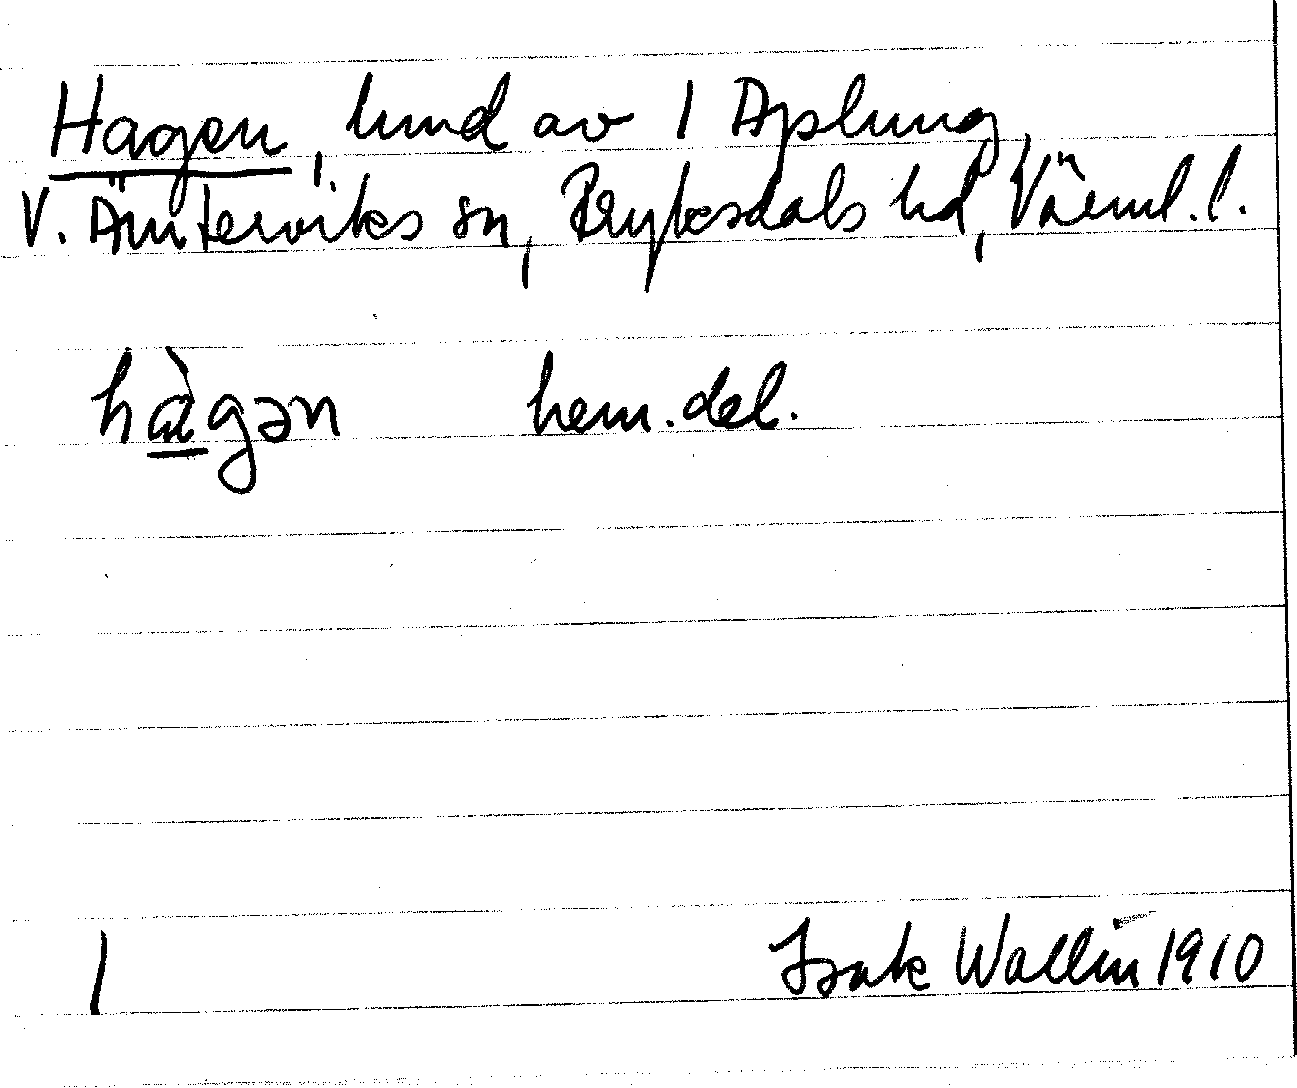 Hagen, hmd av 1 Aplung,
V. Ämterviks sn, Fryksdals hd, Värml. l.
hàgən hem. del.
1 Isak Wallin 1910